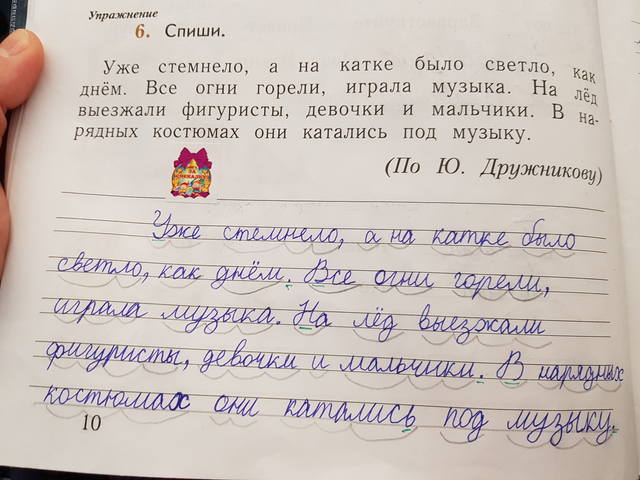 Упражнение
6. Спиши.
Уже стемнело, а на катке было светло, как
днём. Все огни горели, играла музыка. На лёд
выезжали фигуристы, девочки и мальчики. В на-
рядных костюмах они катались под музыку.
ЗА СМЕКАЛКУ
(По Ю. Дружникову)
Уже стемнело, а на катке было
светло, как днём. Все огни горели,
играла музыка. На лёд выезжали
фигуристы, девочки и мальчики. В нарядных
костюмах они катались под музыку.
10